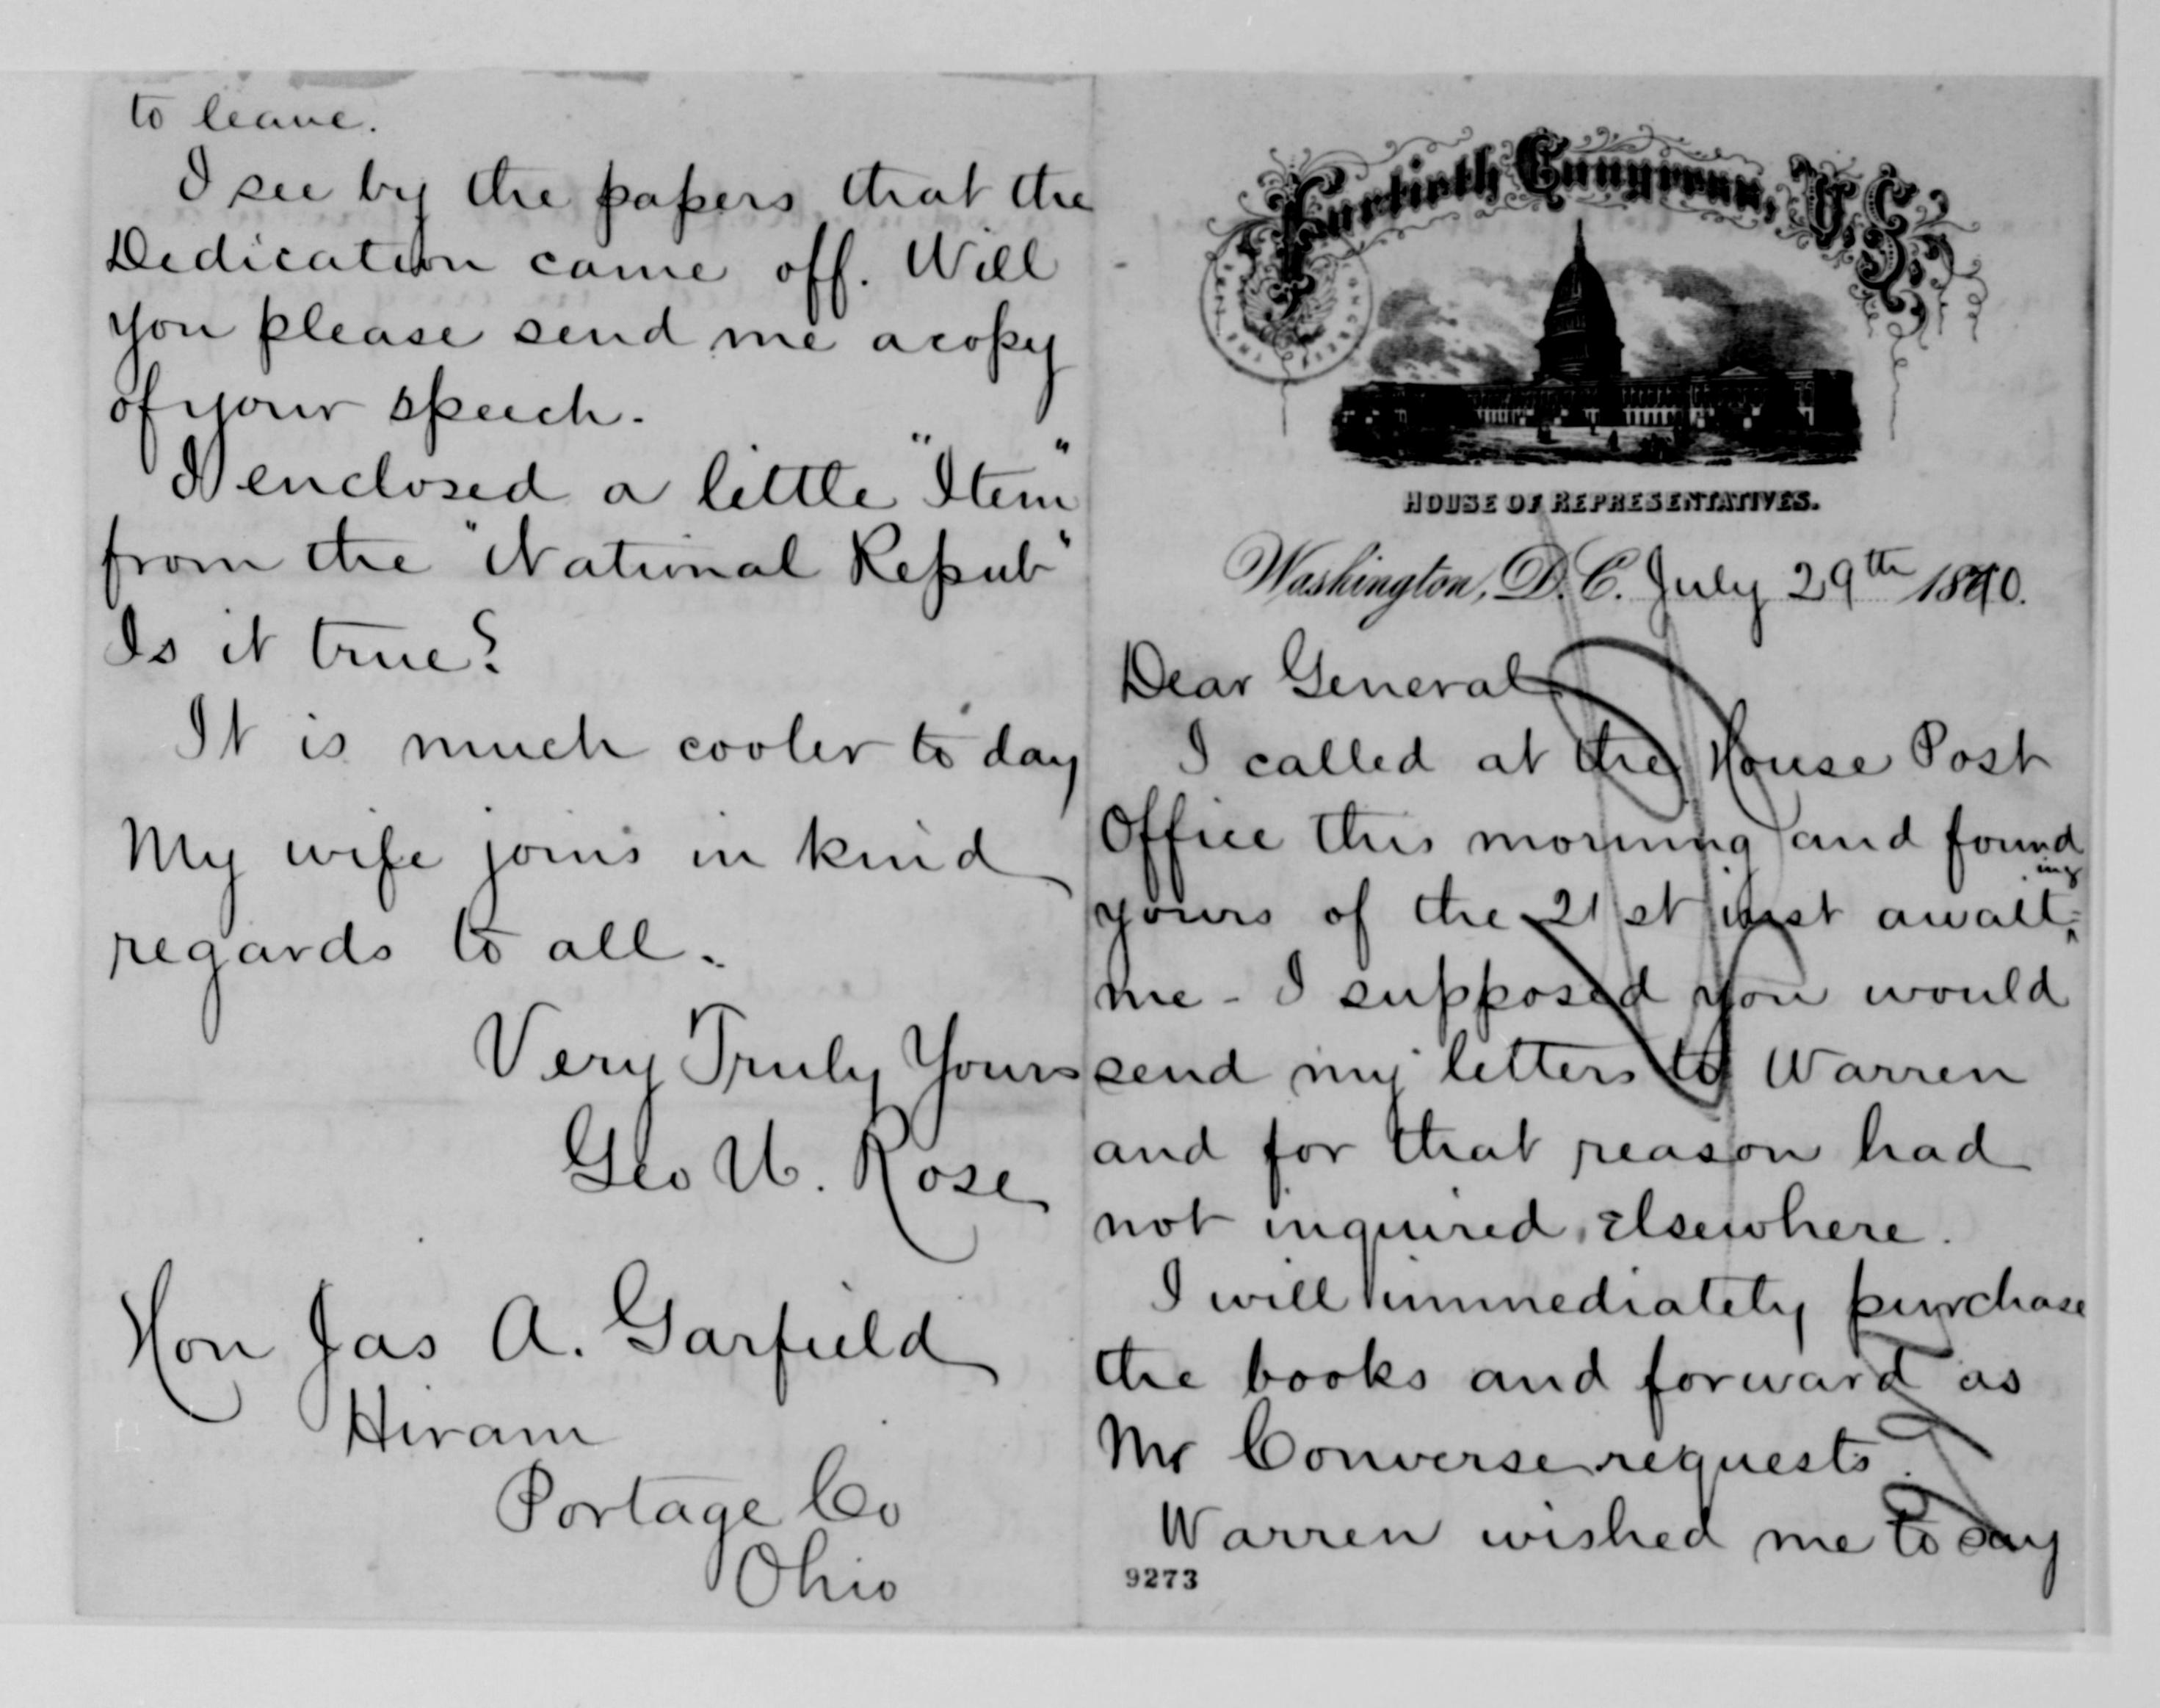 to leave.
I see by the papers that the
Dedication came off. Will
you please send me a copy
of your speech.
I enclosed a little "Item"
from the "National Repub"
Is it true?
It is much cooler to day
My wife joins in kind
regards to all.
Very Truly Yours
Geo U. Rose
Hon Jas A. Garfield
Hiram
Portage Co
Ohio
Fortieth Congress, U.S.
HOUSE OF REPRESENTATIVES.
Washington, D.C. July 29th 1870.
Dear General
I called at the House Post
Office this morning and found
yours of the 21st inst awaiting
me - I supposed you would
send my letters to Warren
and for that reason had
not inquired elsewhere.
I will immediately purchase
the books and forward as
Mr Converse requests.
Warren wished me to say
9273